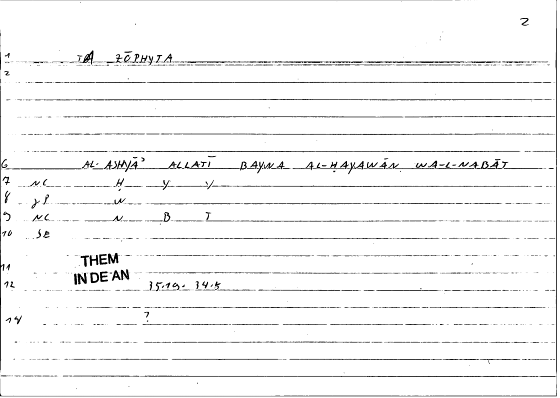 2
1 TA ZŌPHYTA
2
6 AL-ASHYĀʾ ALLATĪ BAYNA AL-ḤAYAWĀN WA-L-NABĀT
7 NC Ḥ Y Y
8 W
9 NC N B T
10 SE
11 THEM
IN DE AN
12 35.19-
14 ?